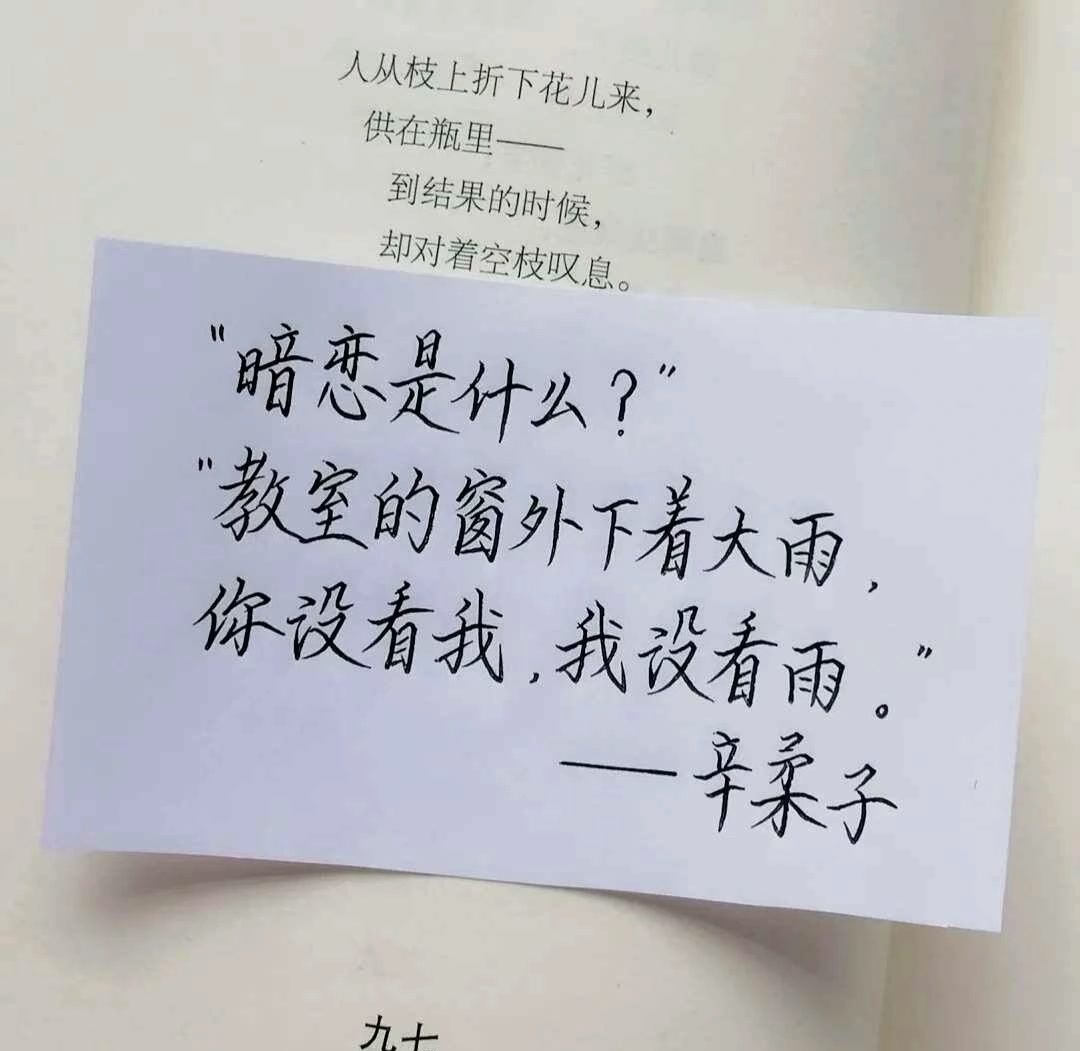 人从枝上折下花儿来，
供在瓶里——
到结果的时候，
却对着空枝叹息。
"暗恋是什么？"
"教室的窗外下着大雨，
你没看我，我没看雨。"
——辛柔子
九十